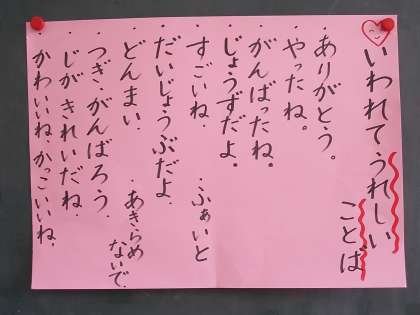 いわれてうれしい
ことば
・ありがとう。
・やったね。
・がんばったね。
・じょうずだよ。
・すごいね.
・ふぁいと
・だいじょうぶだよ.
・どんまい.
・あきらめ
ないで.
・つぎ、がんばろう.
・じがきれいだね.
・かわいいね、かっこいいね.